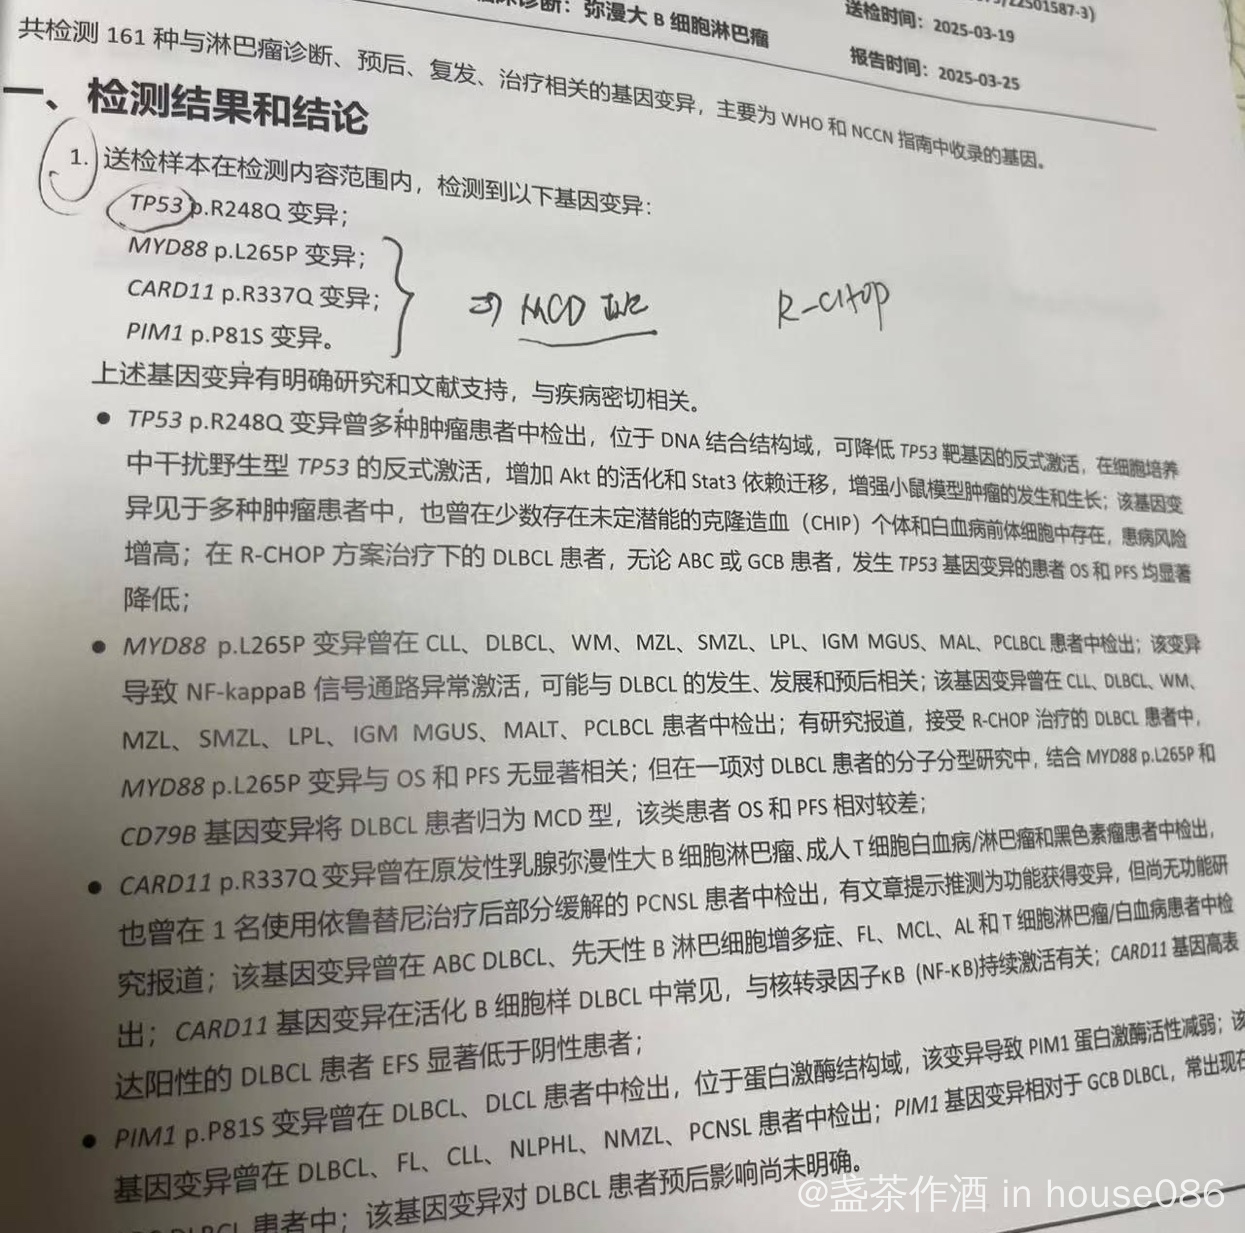 床诊断：弥漫大 B 细胞淋巴瘤
送检时间：2025-03-19
报告时间：2025-03-25
共检测 161 种与淋巴瘤诊断、预后、复发、治疗相关的基因变异，主要为 WHO 和 NCCN 指南中收录的基因。
一、检测结果和结论
1. 送检样本在检测内容范围内，检测到以下基因变异：
TP53 p.R248Q 变异；
MYD88 p.L265P 变异；
CARD11 p.R337Q 变异；
PIM1 p.P81S 变异。
MCD
R-CHOP
上述基因变异有明确研究和文献支持，与疾病密切相关。
● TP53 p.R248Q 变异曾多种肿瘤患者中检出，位于 DNA 结合结构域，可降低 TP53 靶基因的反式激活，在细胞培养
中干扰野生型 TP53 的反式激活，增加 Akt 的活化和 Stat3 依赖迁移，增强小鼠模型肿瘤的发生和生长；该基因变
异见于多种肿瘤患者中，也曾在少数存在未定潜能的克隆造血（CHIP）个体和白血病前体细胞中存在，患病风险
增高；在 R-CHOP 方案治疗下的 DLBCL 患者，无论 ABC 或 GCB 患者，发生 TP53 基因变异的患者 OS 和 PFS 均显著
降低；
● MYD88 p.L265P 变异曾在 CLL、DLBCL、WM、MZL、SMZL、LPL、IGM MGUS、MAL、PCLBCL 患者中检出；该变异
导致 NF-kappaB 信号通路异常激活，可能与 DLBCL 的发生、发展和预后相关；该基因变异曾在 CLL、DLBCL、WM、
MZL、SMZL、LPL、IGM MGUS、MALT、PCLBCL 患者中检出；有研究报道，接受 R-CHOP 治疗的 DLBCL 患者中，
MYD88 p.L265P 变异与 OS 和 PFS 无显著相关；但在一项对 DLBCL 患者的分子分型研究中，结合 MYD88 p.L265P 和
CD79B 基因变异将 DLBCL 患者归为 MCD 型，该类患者 OS 和 PFS 相对较差；
● CARD11 p.R337Q 变异曾在原发性乳腺弥漫性大 B 细胞淋巴瘤、成人 T 细胞白血病/淋巴瘤和黑色素瘤患者中检出，
也曾在 1 名使用依鲁替尼治疗后部分缓解的 PCNSL 患者中检出，有文章提示推测为功能获得变异，但尚无功能研
究报道；该基因变异曾在 ABC DLBCL、先天性 B 淋巴细胞增多症、FL、MCL、AL 和 T 细胞淋巴瘤/白血病患者中检
出；CARD11 基因变异在活化 B 细胞样 DLBCL 中常见，与核转录因子κB (NF-κB)持续激活有关；CARD11 基因高表
达阳性的 DLBCL 患者 EFS 显著低于阴性患者；
● PIM1 p.P81S 变异曾在 DLBCL、DLCL 患者中检出，位于蛋白激酶结构域，该变异导致 PIM1 蛋白激酶活性减弱；该
基因变异曾在 DLBCL、FL、CLL、NLPHL、NMZL、PCNSL 患者中检出；PIM1 基因变异相对于 GCB DLBCL，常出现在
DLBCL 患者中；该基因变异对 DLBCL 患者预后影响尚未明确。
@盏茶作酒 in house086